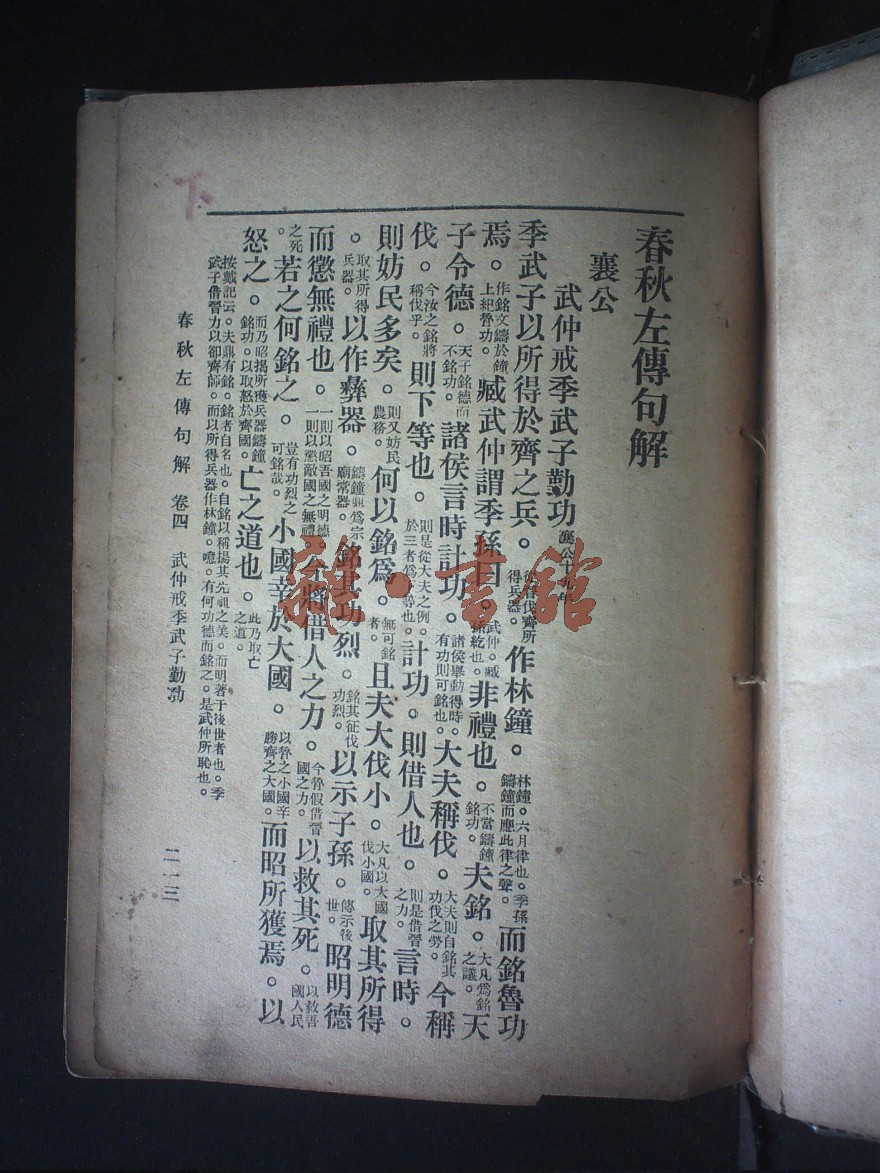 春秋左傳句解
襄公
武仲戒季武子勤功 襄公十九年
季武子以所得於齊之兵。從晉伐齊所得兵器。作林鐘。林鐘。六月律也。季孫鑄鐘而應此律之聲。而銘魯功
焉。作銘文鑄於鐘上紀魯功。臧武仲謂季孫曰。武仲。臧孫紇也。非禮也。不當鑄鐘銘功。夫銘。大凡爲銘之議。天
子令德。天子銘德而不銘功。諸侯言時計功。諸侯舉動得時。有功則可銘也。大夫稱伐。大夫則自銘其功伐之勞。今稱
伐。今汝之銘將稱伐乎。則下等也。則是從大夫之例。於三者爲下等也。計功。則借人也。則是借晉之力。言時。
則妨民多矣。則又妨民農務。何以銘爲。無可銘者。且夫大伐小。大凡以大國伐小國。取其所得
。取其所得兵器。以作彝器。鑄鐘鼎爲宗廟常器。銘其功烈。銘其征伐功烈。以示子孫。傳示後世。昭明德
而懲無禮也。一則以昭吾國之明德。一則以懲敵國之無禮。今將借人之力。今魯假借晉國之力。以救其死。以救吾國人民
之死。若之何銘之。豈有功烈之可銘哉。小國幸於大國。以魯之小國幸勝齊之大國。而昭所獲焉。以
怒之。而乃昭揭所獲兵器鑄鐘銘功。以取怒於齊國。亡之道也。此乃取亡之道。
按戴記云。夫鼎有銘。銘者自名也。自銘以稱揚其先祖之美。而明著于後世者也。季
武子借晉力以卻齊師。而以所得兵器作林鐘。噫。有何功德而銘之。是武仲所恥也。
春秋左傳句解 卷四 武仲戒季武子勤功 二一三
下
雜·書館